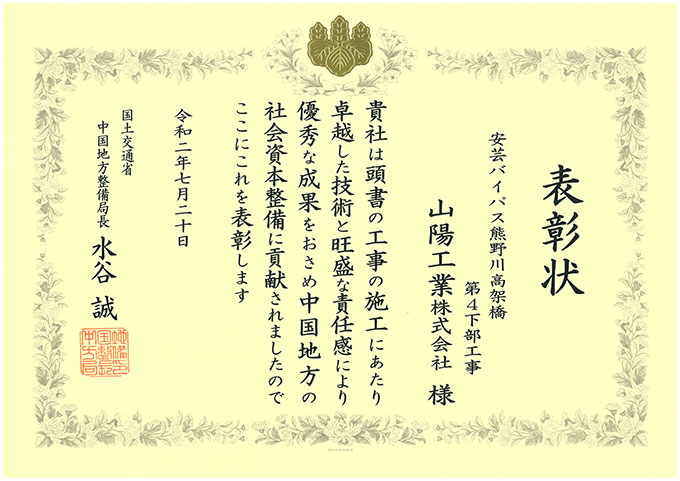 表彰状
安芸バイパス熊野川高架橋
第４下部工事
山陽工業株式会社 様
貴社は頭書の工事の施工にあたり
卓越した技術と旺盛な責任感により
優秀な成果をおさめ中国地方の
社会資本整備に貢献されましたので
ここにこれを表彰します
令和二年七月二十日
国土交通省
中国地方整備局長 水谷 誠